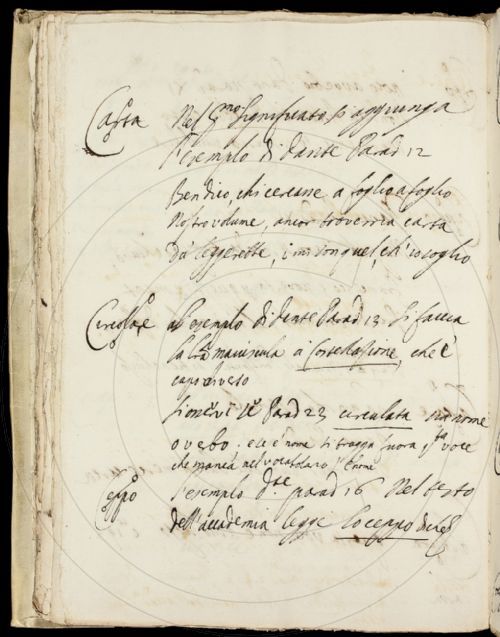 Carta Nel p.mo significato, si aggiunga
l'esempio di Dante Parad 12
Ben dico, chi cercasse a foglio a foglio
Nostro volume, ancor troverria carta
Da leggerebbe, i mi son quel, ch'io soglio
Circolare al esempio di Dante Parad 13. si faccia
la maiuscula a Constellazione, che è
capoverso
Parad 23 circulata nome
o verbo. e se è nome si tragga fuora voce
che manca nel vocabolario
Ceppo l'esempio parad 16 Nel testo
dell'accademia legge lo ceppo di che